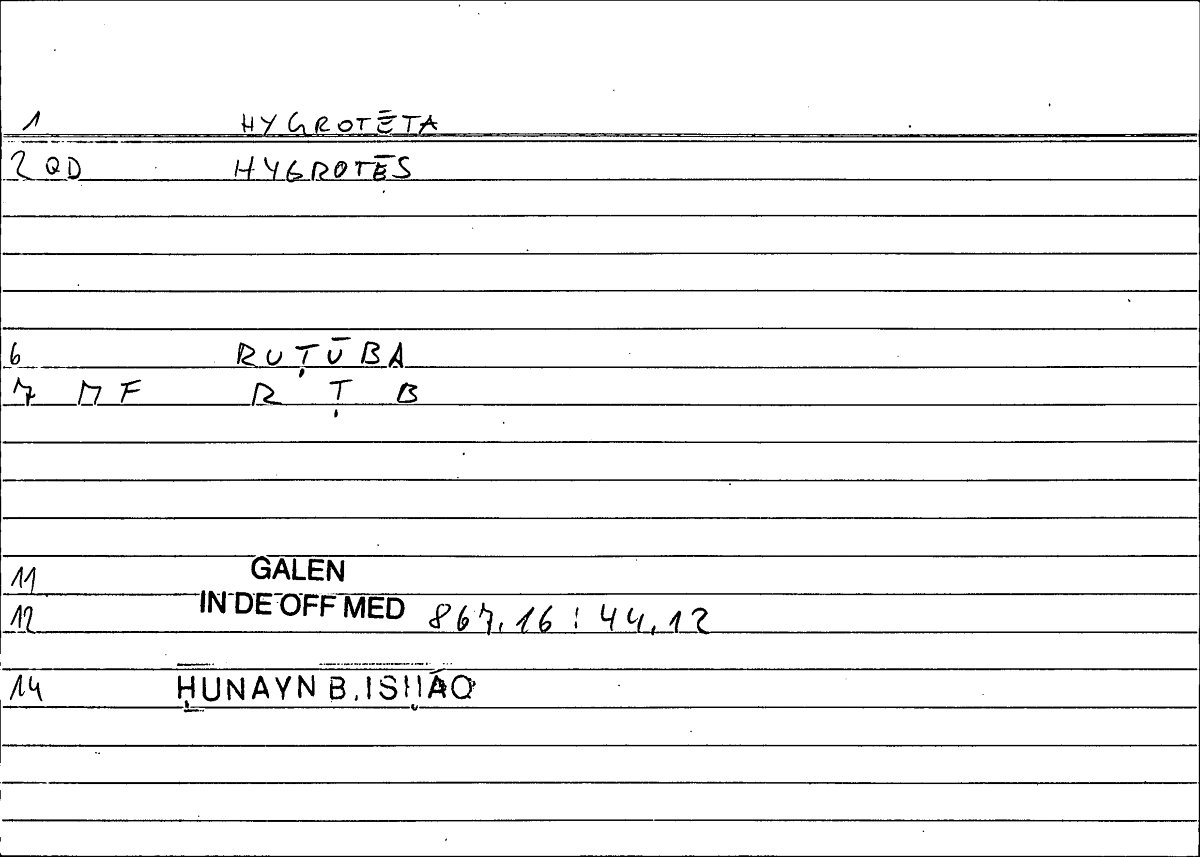 1 HYGROTĒTA
2 QD HYGROTĒS
6 RUṬŪBA
7 MF R Ṭ B
11 GALEN
12 IN DE OFF MED 867,16 : 44,12
14 ḤUNAYN B. ISḤĀQ